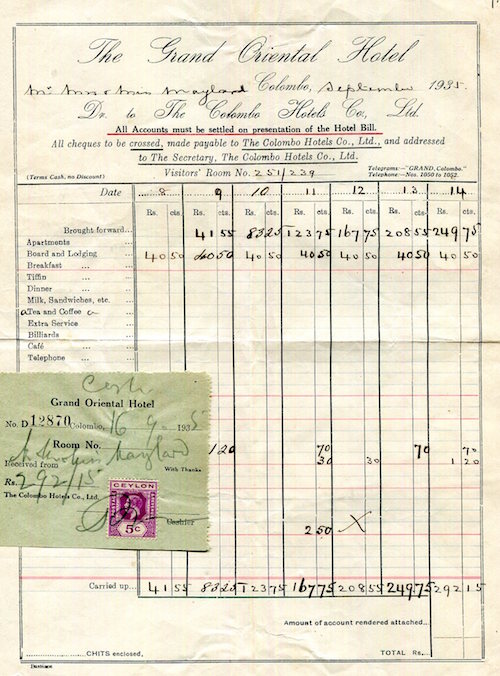 The Grand Oriental Hotel
Mr Mrs & Miss Mayland Colombo, September 1935.
Dr. to The Colombo Hotels Co., Ltd.
All Accounts must be settled on presentation of the Hotel Bill.
All cheques to be crossed, made payable to The Colombo Hotels Co., Ltd., and addressed
to The Secretary, The Colombo Hotels Co., Ltd.
(Terms Cash, no Discount) Visitors' Room No. 251/239 Telegrams:—"GRAND, Colombo."
Telephone:—Nos. 1050 to 1052.
Date 8 9 10 11 12 13 14
Rs. cts. Rs. cts. Rs. cts. Rs. cts. Rs. cts. Rs. cts. Rs. cts.
Brought forward... 41 55 83 25 123 75 167 75 208 55 249 75
Apartments
Board and Lodging 40 50 40 50 40 50 40 50 40 50 40 50 40 50
Breakfast ... ...
Tiffin ... ...
Dinner ... ...
Milk, Sandwiches, etc. ...
Tea and Coffee ...
Extra Service ...
Billiards ...
Café ... ...
Telephone ...
Grand Oriental Hotel
No. D 12870 Colombo, 16 9 1935
Room No. Mayland
Received from With Thanks
Rs. 292/15
The Colombo Hotels Co., Ltd.
Cashier
CEYLON
5c
1 20 70 70 70
30 30 1 20
2 50 X
Carried up... 41 55 83 25 123 75 167 75 208 55 249 75 292 15
Amount of account rendered attached...
CHITS enclosed, TOTAL Rs.